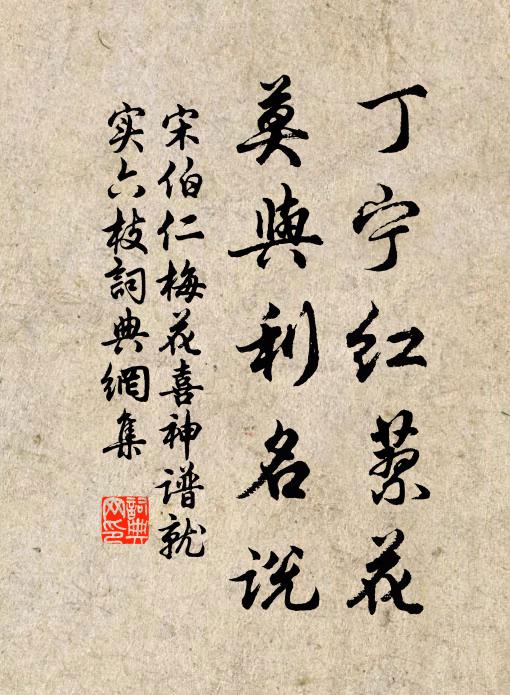 丁宁红蓼花
莫與利名说
宋伯仁梅花喜神谱就
实六枝詞典網集
詞典网印